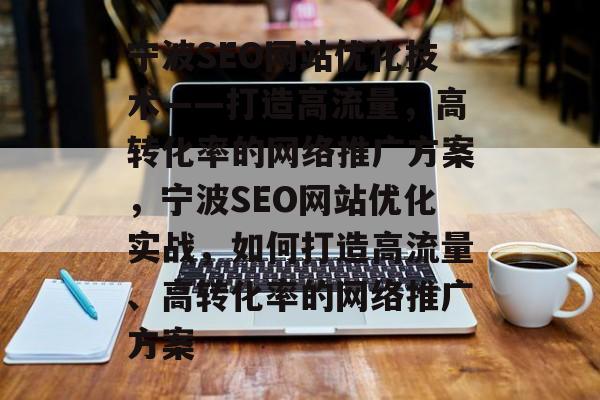 宁波SEO网站优化技
术——打造高流量，高
转化率的网络推广方案
，宁波SEO网站优化
实战，如何打造高流量
、高转化率的网络推广
方案